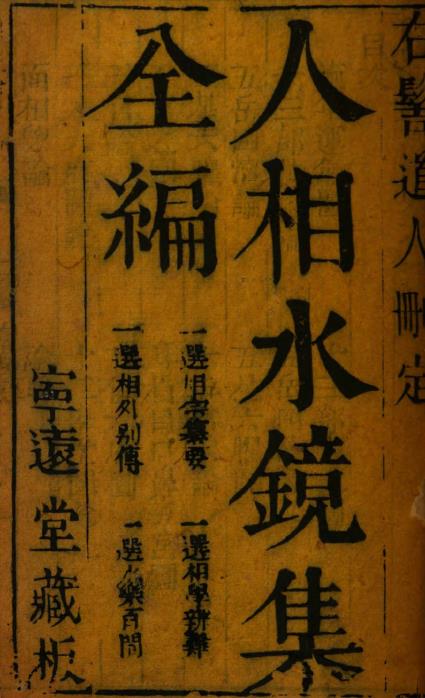 右髻道人刪定
人相水鏡集
全編
一選纂要
一選相學新
一選相外別傳
一選百問
寧遠堂藏板